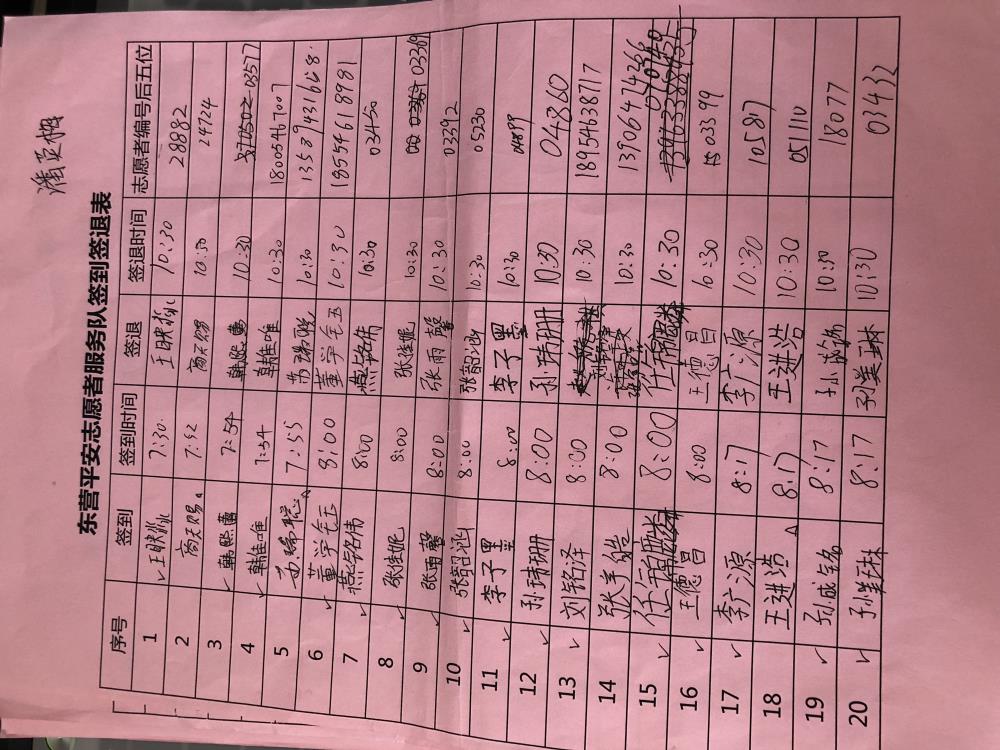 东营平安志愿者服务队签到签退表
序号 签到 签到时间 签退 签退时间 志愿者编号后五位
1 王映 7:30 王映 10:30 28882
2 商天赐 7:52 商天赐 10:30 24724
3 韩熙 7:54 韩熙 10:30 03577
4 韩维唯 7:54 韩维唯 10:30 18005467007
5 苏瑞聪 7:55 苏瑞聪 10:30 13589431668
6 董学钰玉 8:00 董学钰玉 10:30 18554618981
7 燕铭伟 8:00 燕铭伟 10:30 03450
8 张佳妮 8:00 张佳妮 10:30 03369
9 张雨馨 8:00 张雨馨 10:30 03392
10 张韶涵 8:00 张韶涵 10:30 05230
11 李子墨 8:00 李子墨 10:30 04899
12 孙琲珊 8:00 孙琲珊 10:30 04860
13 刘铭泽 8:00 10:30 18954638717
14 张 皓 8:00 10:30 13906474266
15 任 8:00 任 10:30
16 王德昌 8:00 王德昌 10:30 03399
17 李广源 8:17 李广源 10:30 10587
18 王进浩 8:17 王进浩 10:30 05110
19 孙成铭 8:17 孙 10:30 18077
20 孙美琳 8:17 孙美琳 10:30 03432